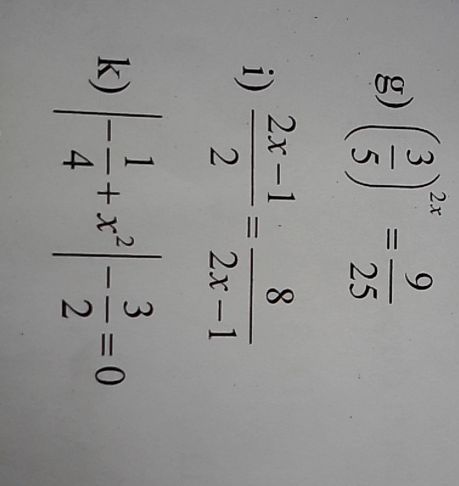 g) (3/5)^{2x} = 9/25
i) (2x-1)/2 = 8/(2x-1)
k) |-1/4 + x²| - 3/2 = 0